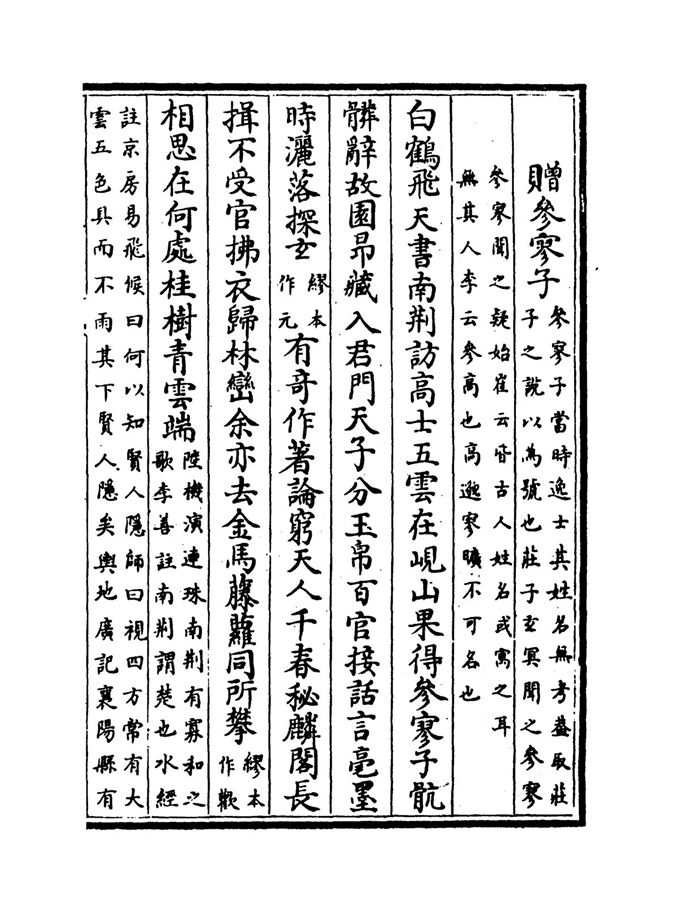 贈參寥子參寥子當時逸士其姓名無考蓋取莊
子之說以為號也莊子玄冥聞之參寥
參寥聞之疑始崔云皆古人姓名或寓之耳
無其人李云參高也高邈寥曠不可名也
白鶴飛天書南荆訪高士五雲在峴山果得參寥子骯
髒辭故園昂藏入君門天子分玉帛百官接話言毫墨
時灑落探玄繆本作元有奇作著論窮天人千春秘麟閣長
揖不受官拂衣歸林巒余亦去金馬藤蘿同所攀繆本作歡
相思在何處桂樹青雲端陸機演連珠南荆有寡和之
歌李善註南荆謂楚也水經
註京房易飛候曰何以知賢人隱師曰視四方常有大
雲五色具而不雨其下賢人隱矣輿地廣記襄陽縣有